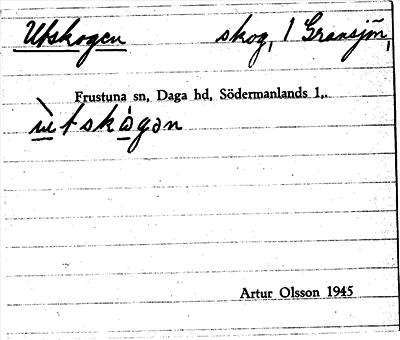 Utskogen skog, 1 Gransjön,
Frustuna sn, Daga hd, Södermanlands l,.
ùtskògən
Artur Olsson 1945